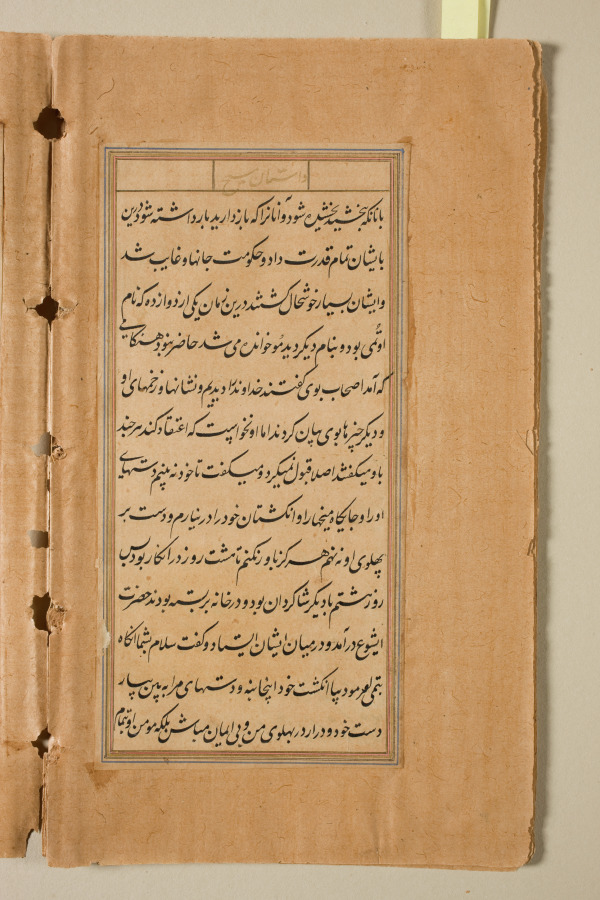 داستان مسیح
بآنانکه ببخشید بخشیده شود و آنانرا که بازدارید بازداشته شود درین
بایشان تمام قدرت داد و حکومت جانها و غایب شد
وایشان بسیار خوشحال گشتند درین زمان یکی از دوازده که نام
او تُمی بود و بنام دیگر دیدمو خوانده می شد حاضر نبود هنگامی
که آمد اصحاب بوی گفتند خداوند را دیدیم و نشانها و زخمهای او
و دیگر چیزها بوی بیان کردند اما او نخواست که اعتقاد کند هرچند
باو میگفتند اصلا قبول نمیکرد و میگفت تا خود نه بینم دستهای
او را و جایگاه میخها را و انگشتان خود را در نیارم و دست بر
پهلوی او نه نهم هرگز باور نکنم تا هشت روز در انکار بود پس
روز هشتم با دیگر شاگردان بود و در خانه بر بسته بودند حضرت
ایشوع درآمد و در میان ایشان ایستاد و گفت سلام بشما آنگاه
بتمی فرمود بیا انگشت خود اینجا بنه و دستهای مرا به بین بیار
دست خود و درار در پهلوی من و بی ایمان مباش بلکه مومن او تمام